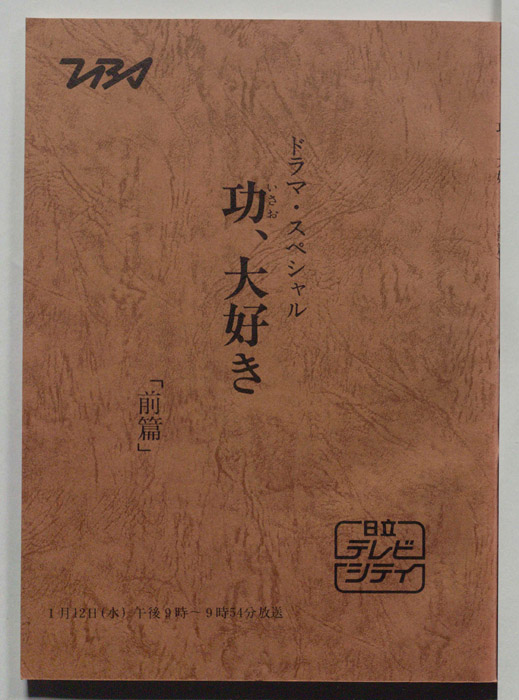 TBS
ドラマ・スペシャル
いさお
功、大好き
「前篇」
日立
テレビ
シティ
1月12日(水) 午後9時～9時54分放送